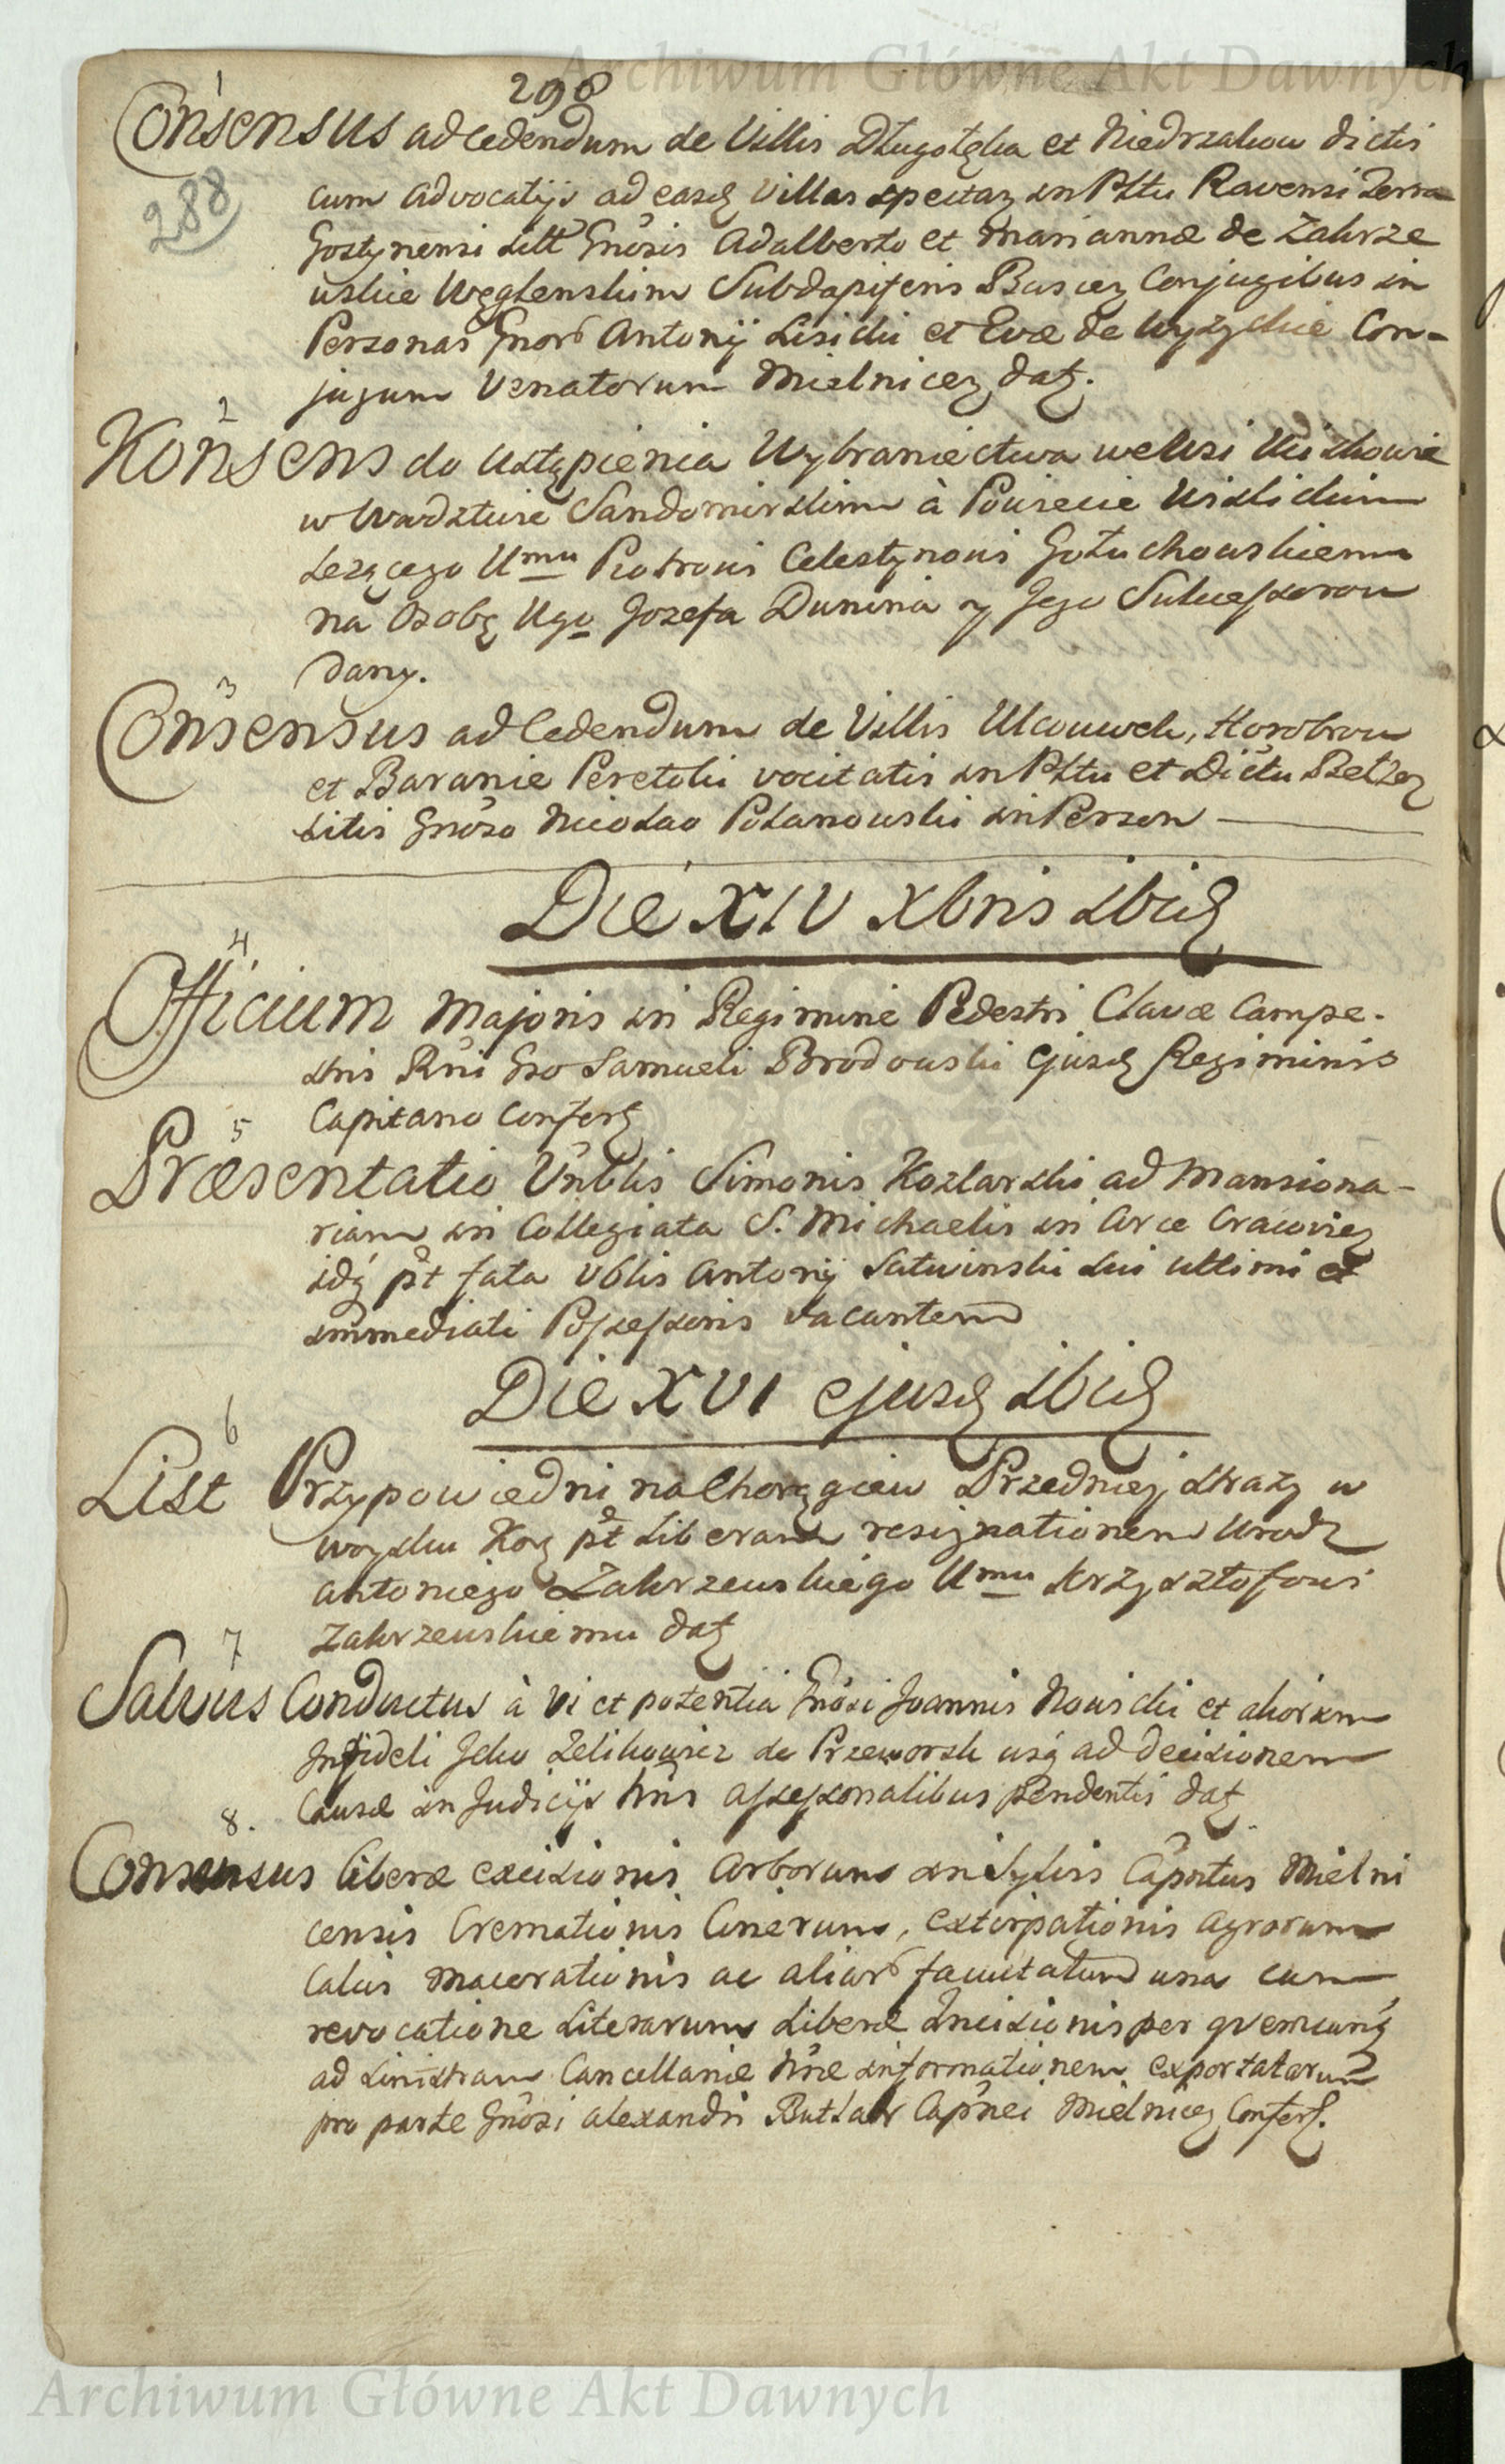 Archiwum Główne Akt Dawnych
298
288
1
Consensus ad cedendum de Villis Długołęka et Niedrzakow dictis
cum Advocatijs ad easq Villas spectaz in Pltu Ravensi Terra
Gostynensi sitt Gnosis Adalberto et Mariannæ de Zakrze
wskie Węglenskim Subdapiferis Buscez Conjugibus in
Personas Gnor Antonij Lisicki et Evæ de Wyżyckie Con-
jugum Venatorum Mielnicez datz.
2
Konsens do Ustąpienia Wybraniectwa we Wsi
w Wwdztwie Sandomirskim à Powiecie Wislickim
Lezącego Umu Piotrowi Celestynowi Gołuchowskiemu
na Osobę Ugo Jozefa Dunina y Jego Sukcessorow
dany.
3
Consensus ad Cedendum de Villis Ulwuwek, Horobrow
et Baranie Peretoki vocitatis in Pltu et Dictu Belzez
sitis Gnoso Nicolao Polanowski in Person
Die XIV Xbris ibid
4
Officium Majoris in Regimine Pedestri Clavæ Campe-
stris Rni Gso Samueli Brodowski Ejusd Regiminis
Capitano Confert
5
Præsentatio Vnblis Simonis Kozlarski ad Mansiona-
riam in Collegiata S. Michaelis in Arce Cracoviez
idq pt fata Vblis Antonij Satwinski sui ultimi et
immediati Possessoris vacantem
Die XVI ejusd ibid
6
List Przypowiedni na Chorągiew Przedniej straży w
woysku Kor pt Liberam resignationem Urodz
Antoniego Zakrzewskiego Umu Krzysztofowi
Zakrzewskiemu datz
7
Salvus Conductus à vi et potentia Gnosi Joannis Nowicki et aliorum
Infideli Jcko Zelikowicz de Przeworsk usq ad decisionem
Causæ in Judicijs Nris Assessorialibus pendentis datz
8.
Consensus liberæ excisionis Arborum in Sylvis Capntus Mielni
censis Cremationis Cinerum, extirpationis Agrorum
Calcis macerationis ac aliar facultatum una cum
revocatione Literarum Liberæ Incisionis per qvemcunq
ad sinistram Cancellariæ Nræ informationem exportatarum
pro parte Gnosi Alexandri Butlar Capnei Mielnicz Confert.
Archiwum Główne Akt Dawnych